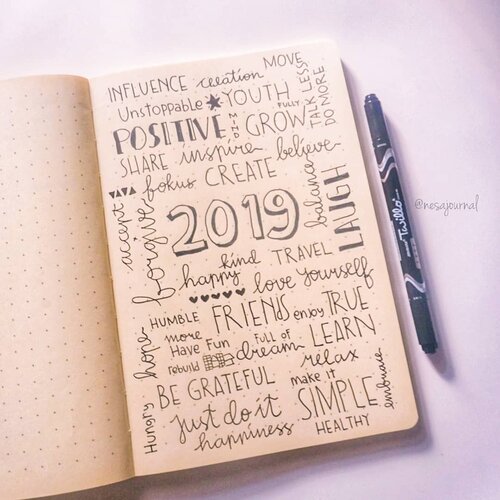 INFLUENCE creation MOVE
Unstoppable YOUTH
TALK LESS
DO MORE
POSITIVE MIND FULLY GROW
SHARE inspire believe
fokus CREATE
accept
forgive
2019
balance
LAUGH
kind TRAVEL
happy love yourself
HUMBLE FRIENDS enjoy TRUE
more Have Fun full of LEARN
rebuild dream relax
hope
BE GRATEFUL make it
just do it SIMPLE
happiness HEALTHY
Hungry
embrace
@nesajournal
Twillo